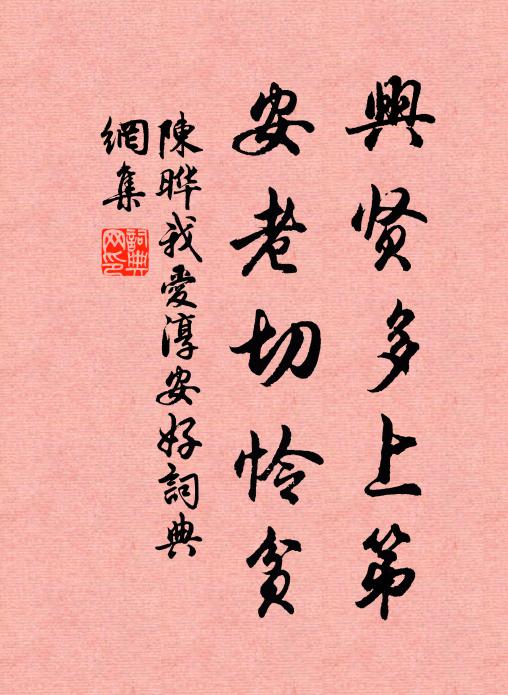 興贤多上第
安老切怜貧
陳晔我愛淳安好詞典
網集
詞典
网印